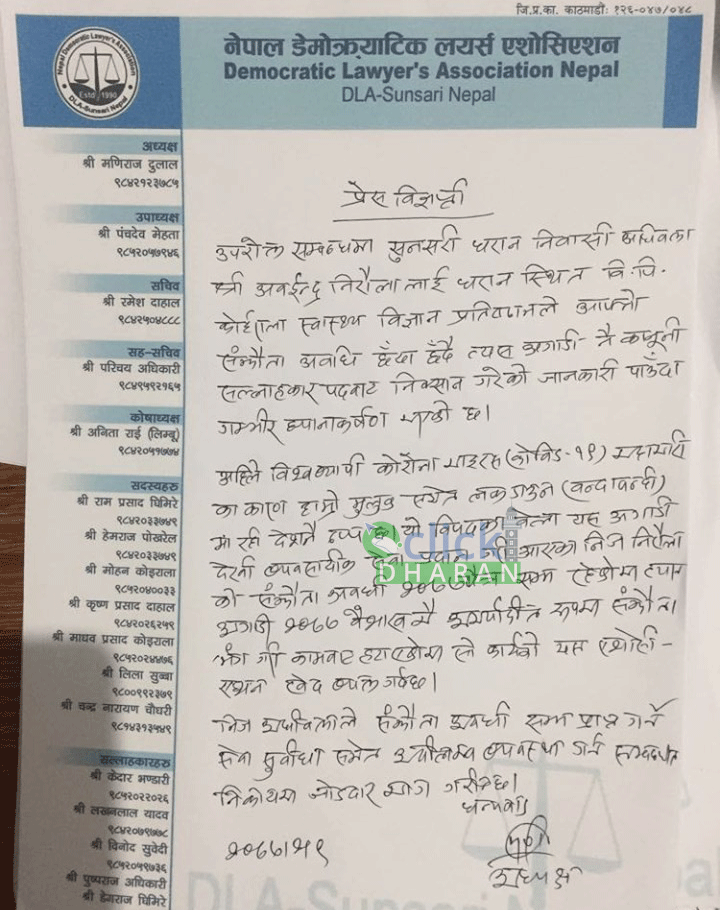 जि.प्र.का. काठमाडौं: १२६-०४७/०४८
नेपाल डेमोक्र्याटिक लयर्स एशोसिएशन
Democratic Lawyer's Association Nepal
DLA-Sunsari Nepal
Nepal Democratic Lawyer's Association
Estd 1990
DLA-Sunsari Nepal
अध्यक्ष
श्री मणिराज दुलाल
९८४२१२३७८५
उपाध्यक्ष
श्री पंचदेव मेहता
९८५२०५७९४६
सचिव
श्री रमेश दाहाल
९८४२५०४८८८
सह-सचिव
श्री परिचय अधिकारी
९८४९५९२१६५
कोषाध्यक्ष
श्री अनिता राई (लिम्बू)
९८४२०५१७७४
सदस्यहरु
श्री राम प्रसाद घिमिरे
९८४२०३३७४९
श्री हेमराज पोखरेल
९८४२०३३७४९
श्री मोहन कोइराला
९८५२०४००३३
श्री कृष्ण प्रसाद दाहाल
९८४२०२६२५१
श्री माधव प्रसाद कोइराला
९८५२०२४४७६
श्री लिला सुब्बा
९८००९९२३७९
श्री चन्द्र नारायण चौधरी
९८१४३१३५४९
सल्लाहकारहरु
श्री केदार भण्डारी
९८५२०२२०२६
श्री लखनलाल यादव
९८४२०७९७७८
श्री विनोद सुवेदी
९८५२०५९७३६
श्री पुष्पराज अधिकारी
श्री डेगराज घिमिरे
प्रेस विज्ञप्ती
उपरोक्त सम्बन्धमा सुनसरी धरान निवासी अधिवक्ता
श्री अवईन्द्र निरौला लाई धरान स्थित वि.पि.
कोईराला स्वास्थ्य विज्ञान प्रतिष्ठानले आफ्नो
संझौता अवधि हुँदा हुँदै त्यस अगाडी नै कानूनी
सल्लाहकार पदबाट निष्कासन गरेको जानकारी पाउँदा
गम्भीर ध्यानाकर्षण भएको छ।
अहिले विश्वव्यापी कोरोना भाइरस (कोविड-१९) महामारी
का कारण हाम्रो मुलुक समेत लकडाउन (बन्दाबन्दी)
मा रही देशनै ठप्प छ। यो विपदका वेला यस अगाडी
देखी व्यवसायीक सेवा प्रदान गरी आएका निज निरौला
को संझौता अवधी २०७७ चैत्र सम्म रहेकोमा
अगाडी २०७७ वैशाख मै अमर्यादीत रूपमा संझौता
भंग गरी कामबाट हटाएकोमा सो कार्यको यस एशोसि-
एशन खेद व्यक्त गर्दछ।
निज अधिवक्ताले संझौता अवधी सम्म प्राप्त गर्ने
सेवा सुवीधा समेत अवीलम्ब व्यवस्था गर्न सम्बन्धित
निकायमा जोडदार माग गरीन्छ।
धन्यवाद
२०७७।१।९
अध्यक्ष
eclick
DHARAN
DLA-Sunsari Nepal